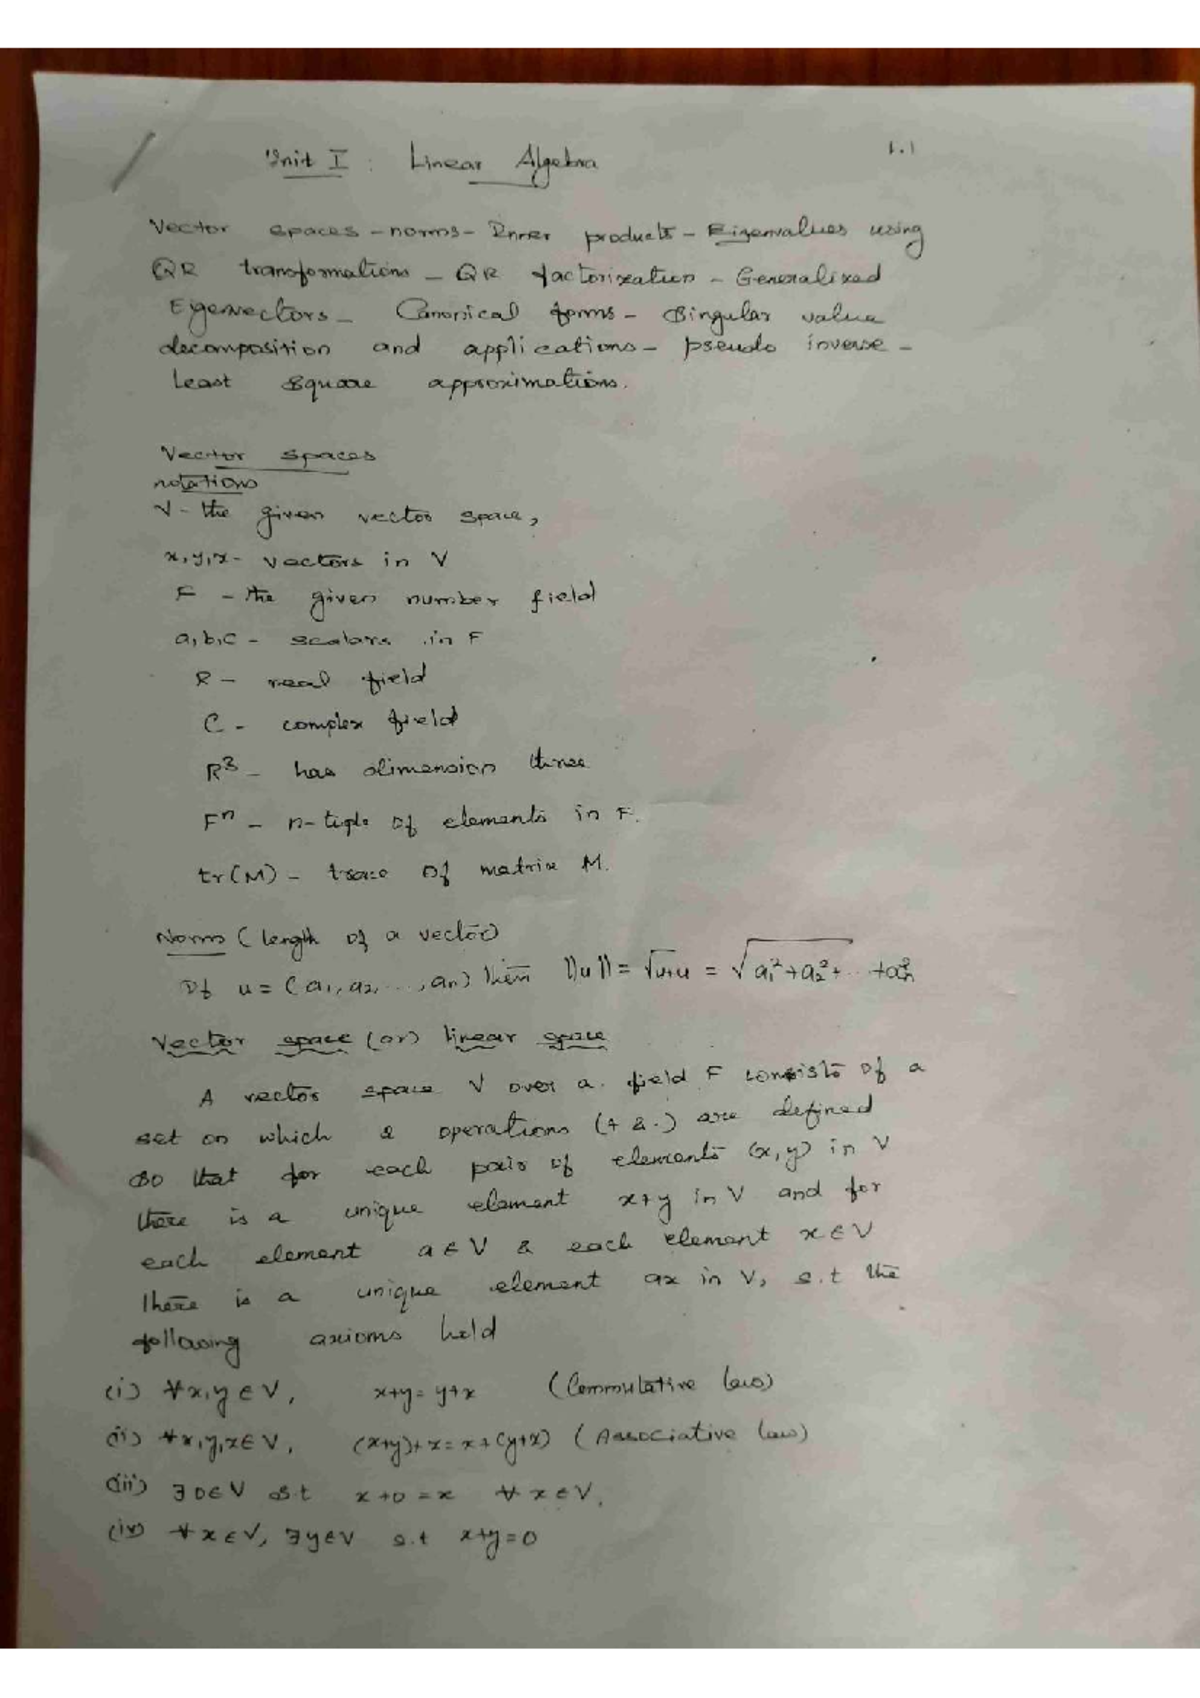 1.1
Unit I : Linear Algebra
Vector spaces - norms - Inner products - Eigenvalues using
QR transformations - QR factorization - Generalized
Eigenvectors - Canonical forms - Singular value
decomposition and applications - pseudo inverse -
least square approximations.
Vector spaces
notations
V - the given vector space,
x, y, z - vectors in V
F - the given number field
a, b, c - scalars in F
R - real field
C - complex field
R³ - has dimension three
Fⁿ - n-tiple of elements in F.
tr(M) - trace of matrix M.
Norms (length of a vector)
If u = (a₁, a₂, ..., aₙ) then ||u|| = √u·u = √a₁²+a₂²+...+aₙ²
Vector space (or) linear space
A vector space V over a field F consists of a
set on which 2 operations (+ & .) are defined
so that for each pair of elements (x, y) in V
there is a unique element x+y in V and for
each element a ∈ V & each element x ∈ V
there is a unique element ax in V, s.t the
following axioms hold
(i) ∀ x, y ∈ V, x+y = y+x (Commutative law)
(ii) ∀ x, y, z ∈ V, (x+y)+z = x+(y+z) (Associative law)
(iii) ∃ 0 ∈ V s.t x+0 = x ∀ x ∈ V.
(iv) ∀ x ∈ V, ∃ y ∈ V s.t x+y = 0